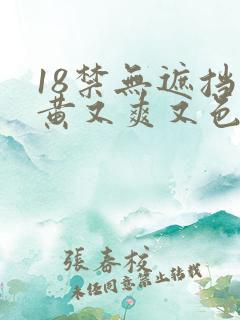 18禁無遮挡
黄又爽又色
張春校
未任同意禁止转载